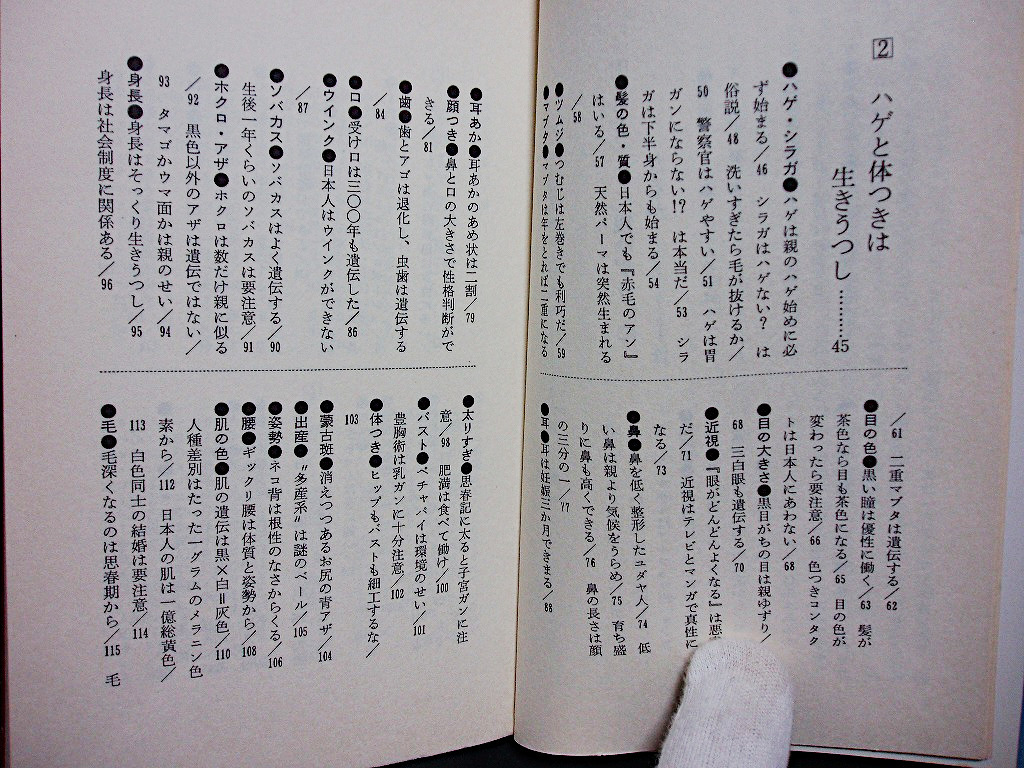 2 ハゲと体つきは
生きうつし…………45
●ハゲ・シラガ●ハゲは親のハゲ始めに必
ず始まる／46 シラガはハゲない？ は
俗説／48 洗いすぎたら毛が抜けるか／
50 警察官はハゲやすい／51 ハゲは胃
ガンにならない!? は本当だ／53 シラ
ガは下半身からも始まる／54
●髪の色・質●日本人でも『赤毛のアン』
はいる／57 天然パーマは突然生まれる
／58
●ツムジ●つむじは左巻きでも利巧だ／59
●マブタ●マブタは年をとれば二重になる
／61 二重マブタは遺伝する／62
●目の色●黒い瞳は優性に働く／63 髪が
茶色なら目も茶色になる／65 目の色が
変わったら要注意／66 色つきコンタク
トは日本人にあわない／68
●目の大きさ●黒目がちの目は親ゆずり／
68 三白眼も遺伝する／70
●近視●『眼がどんどんよくなる』は悪
だ／71 近視はテレビとマンガで真性に
なる／73
●鼻●鼻を低く整形したユダヤ人／74 低
い鼻は親より気候をうらめ／75 育ち盛
りに鼻も高くできる／76 鼻の長さは顔
の三分の一／77
●耳●耳は妊娠三か月できまる／88
●耳あか●耳あかのあめ状は二割／79
●顔つき●鼻と口の大きさで性格判断がで
きる／81
●歯●歯とアゴは退化し、虫歯は遺伝する
／84
●口●受け口は三〇〇年も遺伝した／86
●ウインク●日本人はウインクができない
／87
●ソバカス●ソバカスはよく遺伝する／90
生後一年くらいのソバカスは要注意／91
●ホクロ・アザ●ホクロは数だけ親に似る
／92 黒色以外のアザは遺伝ではない／
93 タマゴかウマ面かは親のせい／94
●身長●身長はそっくり生きうつし／95
身長は社会制度に関係ある／96
●太りすぎ●思春記に太ると子宮ガンに注
意／98 肥満は食べて働け／100
●バスト●ペチャパイは環境のせい／101
豊胸術は乳ガンに十分注意／102
●体つき●ヒップもバストも細工するな／
103
●蒙古斑●消えつつあるお尻の青アザ／104
●出産●〝多産系〟は謎のベール／105
●姿勢●ネコ背は根性のなさからくる／106
●腰●ギックリ腰は体質と姿勢から／108
●肌の色●肌の遺伝は黒×白＝灰色／110
人種差別はたった一グラムのメラニン色
素から／112 日本人の肌は一億総黄色／
113 白色同士の結婚は要注意／114
●毛●毛深くなるのは思春期から／115 毛